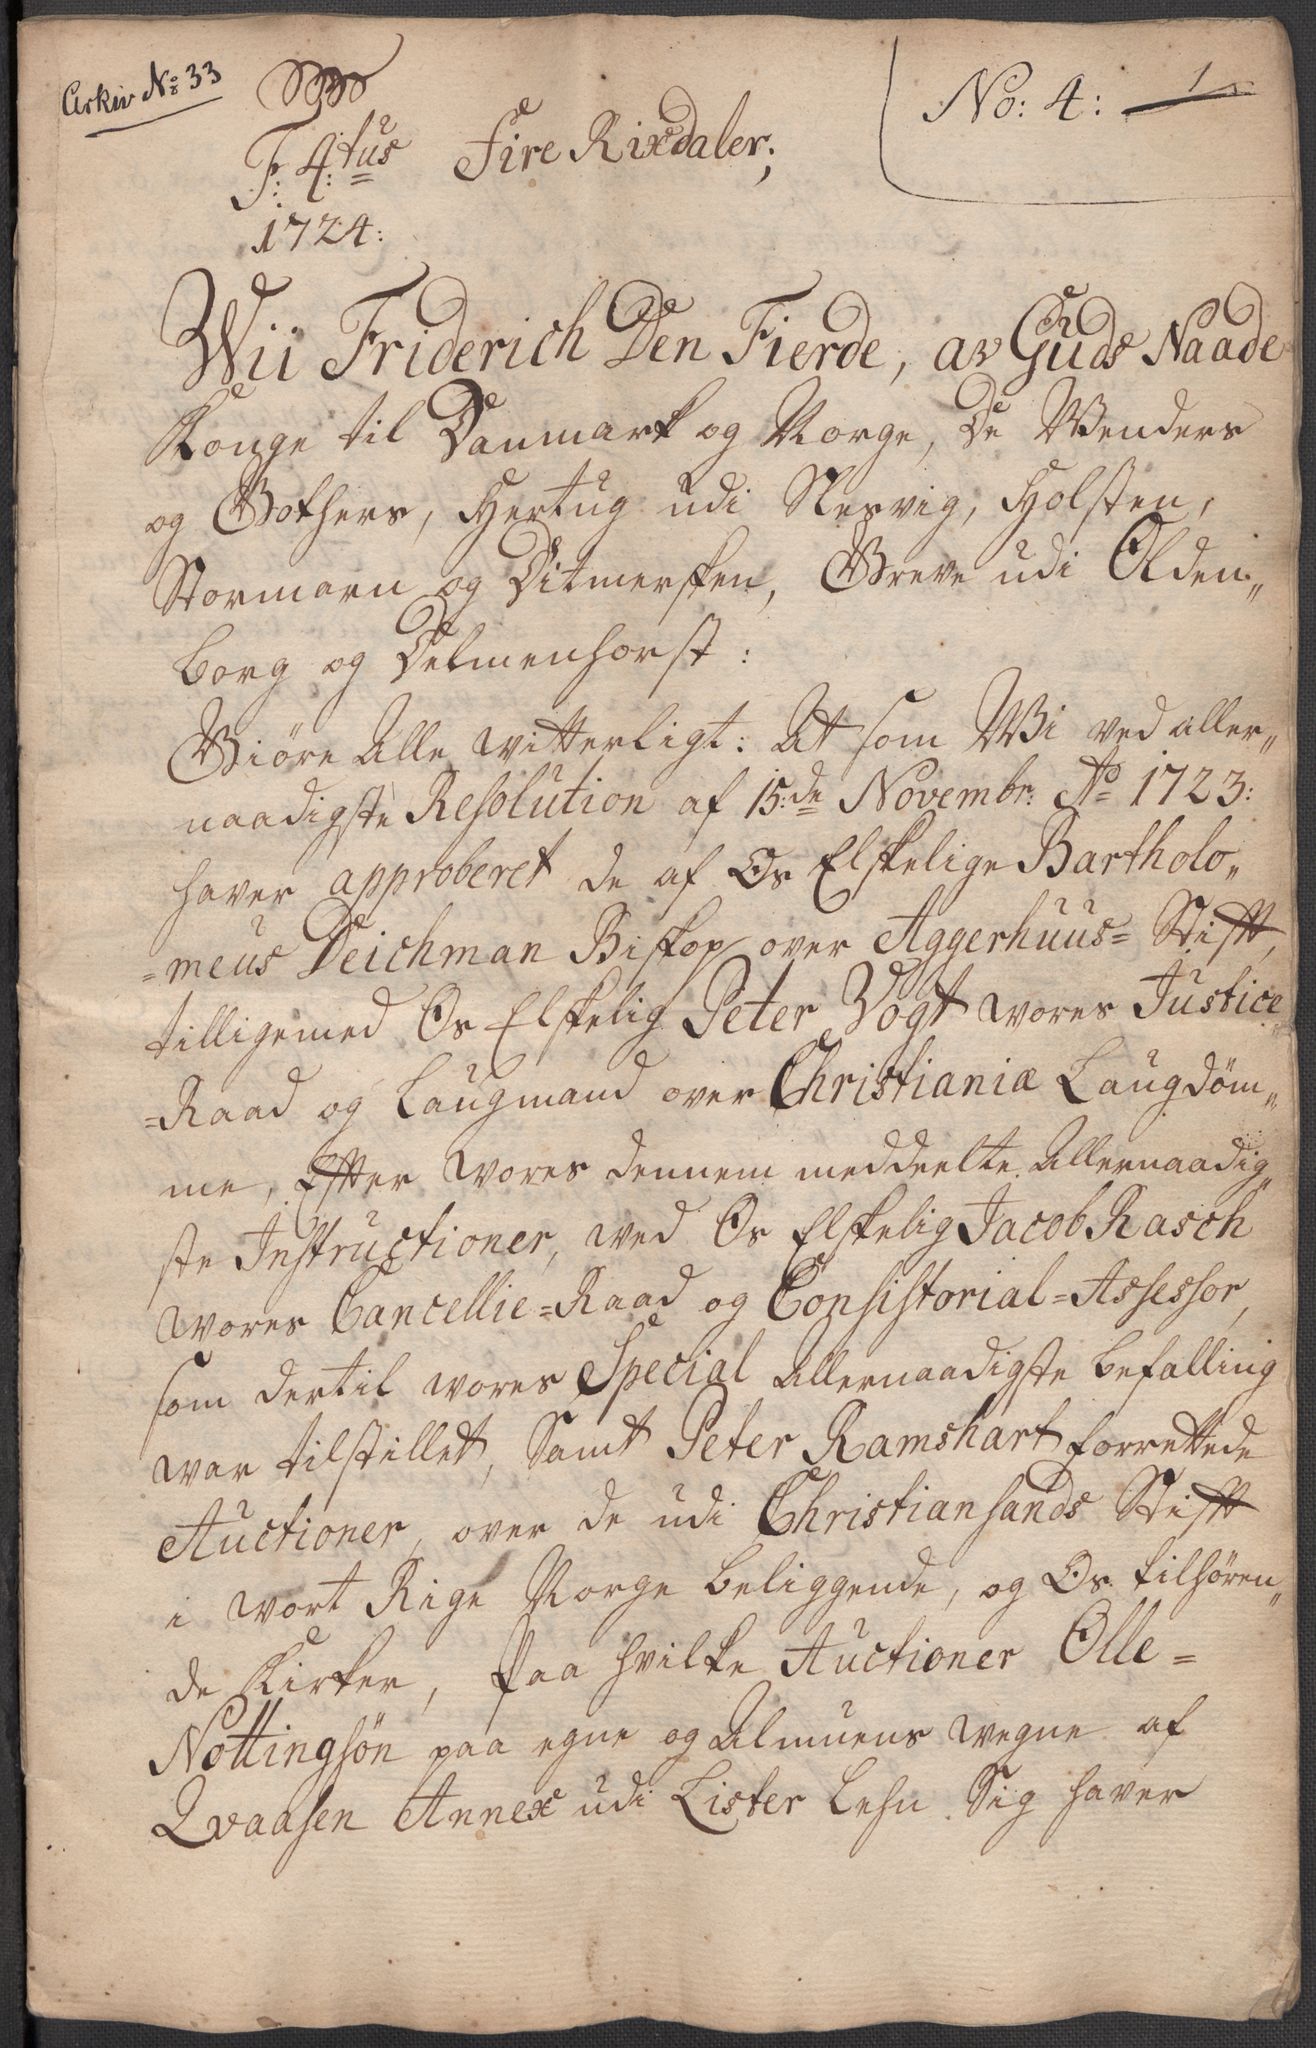 Arkiv No: 33
No: 4: 1
F: 4:tus Fire Rixdaler;
1724:
Wii Friderich Den Fierde, av Guds Naade
Konge til Danmark og Norge, De Wenders
og Gothers, Hertug udi Slesvig, Holsten,
Stormarn og Ditmersken, Greve udi Olden„
borg og Delmenhorst:
Giöre Alle vitterligt: At som Wi ved aller„
naadigste Resolution af 15:de Novembr: Ao 1723:
haver approberet de af Os Elskelige Bartholo„
=meus Deichman Biskop over Aggerhuus= Stift,
tilligemed Os Elskelig Peter Vogt vores Justice
=Raad og Laugmand over Christianiæ Laugdöm„
me, Efter vores dennem meddeelte Allernaadig„
ste Instructioner, ved Os Elskelig Jacob Rasch
vores Cancellie=Raad og Consistorial=Assessor,
som dertil vores Special Allernaadigste befalling
var tilstillet, Samt Peter Ramshart forrettede
Auctioner, over de udi Christiansands Stift
i vort Rige Norge beliggende, og Os tilhören„
de Kirker, paa hvilke Auctioner Olle=
Nottingsön paa egne og Almuens vegne af
Qvaasen Annex udi Lister Lehn Sig haver